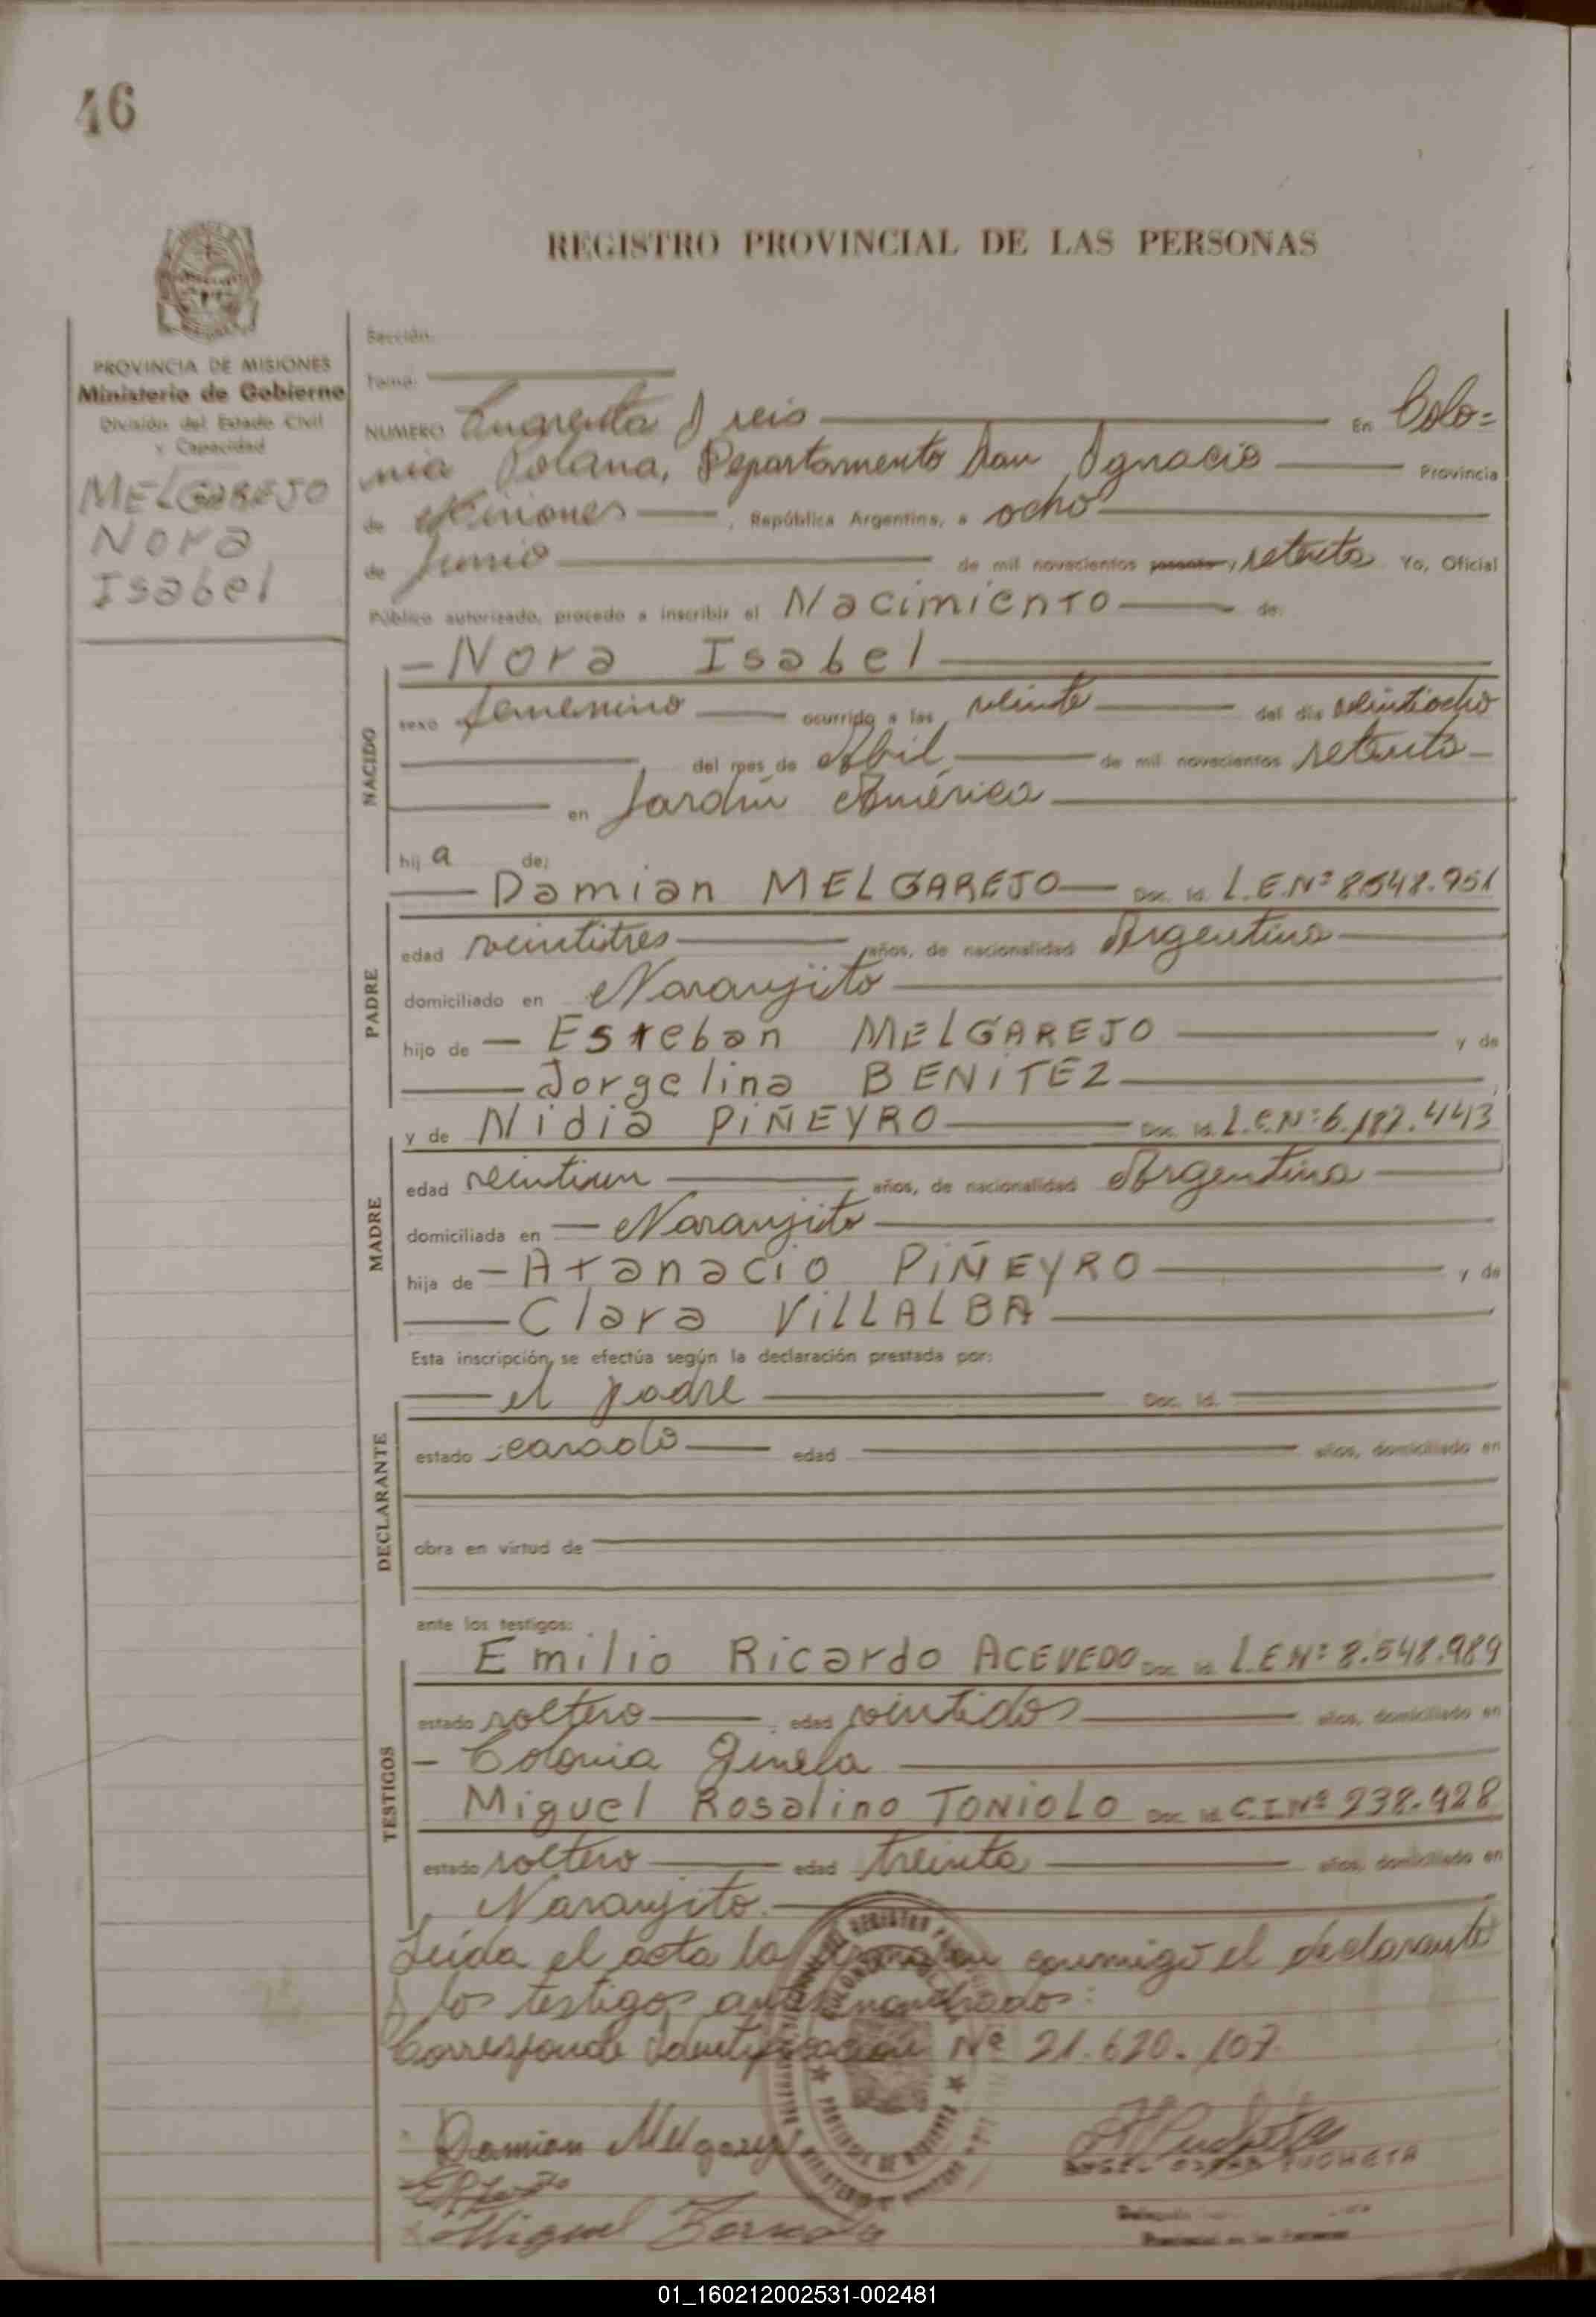 46
REGISTRO PROVINCIAL DE LAS PERSONAS
PROVINCIA DE MISIONES
Ministerio de Gobierno
División del Estado Civil
y Capacidad
MELGAREJO
Nora
Isabel
Sección:
Tomo:
NUMERO Cuarenta y seis En Colo=
nia Polana, Departamento San Ignacio Provincia
de Misiones, República Argentina, a ocho
de Junio de mil novecientos sesenta y setenta Yo, Oficial
Público autorizado, procedo a inscribir el Nacimiento de:
NACIDO
- Nora Isabel
sexo femenino ocurrido a las veinte del día veintiocho
del mes de Abril de mil novecientos setenta
en Jardín América
hij a de:
PADRE
Damian MELGAREJO Doc. Id. L.E.Nº 8.548.951
edad veintitres años, de nacionalidad Argentina
domiciliado en Naranjito
hijo de - Esteban MELGAREJO y de
Jorgelina BENITEZ
MADRE
y de Nidia PIÑEYRO Doc. Id. L.C.Nº 6.187.443
edad veintiun años, de nacionalidad Argentina
domiciliada en - Naranjito
hija de - Atanacio PIÑEYRO y de
Clara VILLALBA
Esta inscripción, se efectúa según la declaración prestada por:
DECLARANTE
el padre Doc. Id.
estado casado edad años, domiciliado en
obra en virtud de
ante los testigos:
TESTIGOS
Emilio Ricardo ACEVEDO Doc. Id. L.E Nº 8.548.989
estado soltero, edad veintidos años, domiciliado en
- Colonia Gisela
Miguel Rosalino TONIOLO Doc. Id. C.I.Nº 238.928
estado soltero edad treinta años, domiciliado en
Naranjito.
Leida el acta la firman conmigo el declarante
y los testigos antes nombrados:
Corresponde Identificacion Nº 21.620.107.
Damian Melgarejo
Miguel
01_160212002531-002481